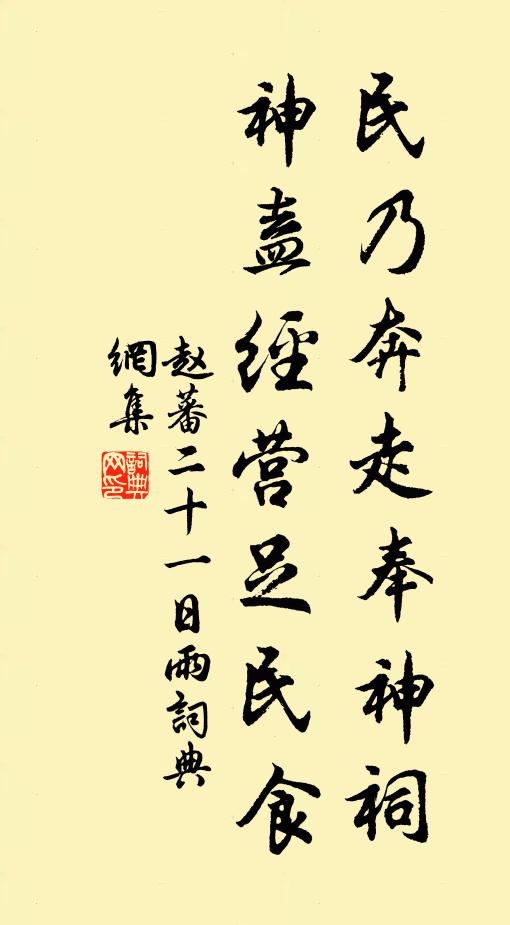 民乃奔走奉神祠
神盍經营足民食
赵蕃二十一日雨詞典
網集
詞典网印